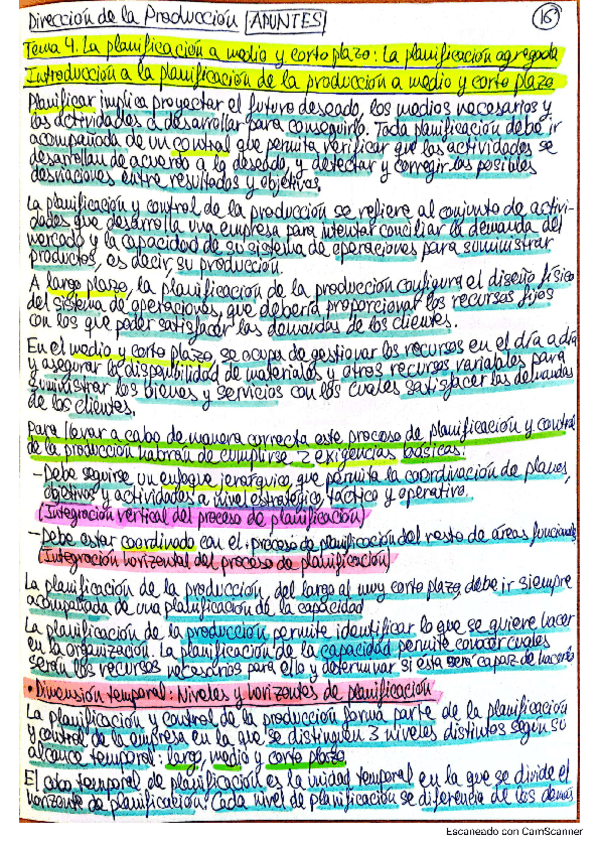 Dirección de la Producción APUNTES 16
Tema 4. La planificación a medio y corto plazo: La planificación agregada
Introducción a la planificación de la producción a medio y corto plazo
Planificar implica proyectar el futuro deseado, los medios necesarios y
las actividades a desarrollar para conseguirlo. Toda planificación debe ir
acompañada de un control que permita verificar que las actividades se
desarrollan de acuerdo a lo deseado, y detectar y corregir las posibles
desviaciones entre resultados y objetivos.
La planificación y control de la producción se refiere al conjunto de activi-
dades que desarrolla una empresa para intentar conciliar la demanda del
mercado y la capacidad de su sistema de operaciones para suministrar
productos, es decir, su producción.
A largo plazo, la planificación de la producción configura el diseño físico
del sistema de operaciones, que debería proporcionar los recursos fijos
con los que poder satisfacer las demandas de los clientes.
En el medio y corto plazo, se ocupa de gestionar los recursos en el día a día
y asegurar la disponibilidad de materiales y otros recursos variables para
suministrar los bienes y servicios con los cuales satisfacer las demandas
de los clientes.
Para llevar a cabo de manera correcta este proceso de planificación y control
de la producción habrán de cumplirse 2 exigencias básicas:
- Debe seguirse un enfoque jerárquico, que permita la coordinación de planes,
objetivos y actividades a nivel estratégico, táctico y operativo.
(Integración vertical del proceso de planificación)
- Debe estar coordinado con el proceso de planificación del resto de áreas funcionales
(Integración horizontal del proceso de planificación)
La planificación de la producción, del largo al muy corto plazo, debe ir siempre
acompañada de una planificación de la capacidad
La planificación de la producción permite identificar lo que se quiere hacer
en la organización. La planificación de la capacidad permite conocer cuales
serán los recursos necesarios para ello y determinar si esta será capaz de hacerlo
• Dimensión temporal: Niveles y horizontes de planificación
La planificación y control de la producción forma parte de la planificación
y control de la empresa en la que se distinguen 3 niveles distintos según su
alcance temporal: largo, medio y corto plazo
El cubo temporal de planificación es la unidad temporal en la que se divide el
horizonte de planificación. Cada nivel de planificación se diferencia de los demás
Escaneado con CamScanner